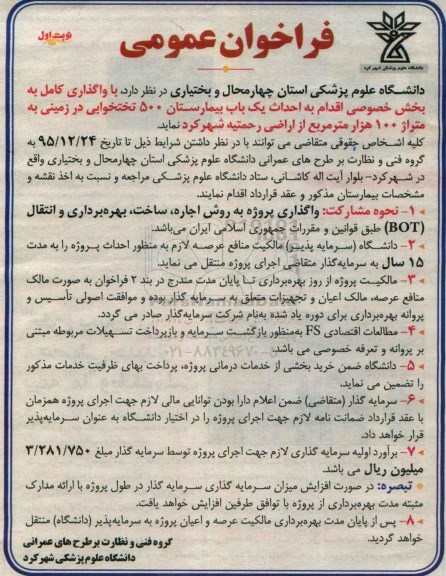 نوبت اول
فراخوان عمومی
دانشگاه علوم پزشکی شهرکرد
دانشگاه علوم پزشکی استان چهارمحال و بختیاری در نظر دارد، با واگذاری کامل به
بخش خصوصی اقدام به احداث یک باب بیمارستان ۵۰۰ تختخوابی در زمینی به
متراژ ۱۰۰ هزار مترمربع از اراضی رحمتیه شهرکرد نماید.
کلیه اشخاص حقوقی متقاضی می توانند با در نظر داشتن شرایط ذیل تا تاریخ ۹۵/۱۲/۲۴ به
گروه فنی و نظارت بر طرح های عمرانی دانشگاه علوم پزشکی استان چهارمحال و بختیاری واقع
در شهرکرد- بلوار آیت اله کاشانی، ستاد دانشگاه علوم پزشکی مراجعه و نسبت به اخذ نقشه و
مشخصات بیمارستان مذکور و عقد قرارداد اقدام نمایند.
۱- نحوه مشارکت: واگذاری پروژه به روش اجاره، ساخت، بهره‌برداری و انتقال
(BOT) طبق قوانین و مقررات جمهوری اسلامی ایران می‌باشد.
۲- دانشگاه (سرمایه پذیر) مالکیت منافع عرصه لازم به منظور احداث پروژه را به مدت
۱۵ سال به سرمایه‌گذار متقاضی اجرای پروژه منتقل می نماید.
۳- مالکیت پروژه از روز بهره‌برداری تا پایان مدت مندرج در بند ۲ فراخوان به صورت مالک
منافع عرصه، مالک اعیان و تجهیزات متعلق به سرمایه گذار بوده و موافقت اصولی تأسیس و
پروانه بهره‌برداری برای دوره یاد شده به‌نام شرکت سرمایه‌گذار صادر می گردد.
۴- مطالعات اقتصادی FS به‌منظور بازگشت سرمایه و بازپرداخت تسهیلات مربوطه مبتنی
بر پروانه و تعرفه خصوصی می باشد.
۵- دانشگاه ضمن خرید بخشی از خدمات درمانی پروژه، پرداخت بهای ظرفیت خدمات مذکور
را تضمین می نماید.
۶- سرمایه گذار (متقاضی) ضمن اعلام دارا بودن توانایی مالی لازم جهت اجرای پروژه همزمان
با عقد قرارداد ضمانت نامه لازم جهت اجرای پروژه را در اختیار دانشگاه به عنوان سرمایه‌پذیر
قرار خواهد داد.
۷- برآورد اولیه سرمایه گذاری لازم جهت اجرای پروژه توسط سرمایه گذار مبلغ ۳/۲۸۱/۷۵۰
میلیون ریال می باشد.
تبصره: در صورت افزایش میزان سرمایه گذاری سرمایه گذار در طول پروژه با ارائه مدارک
مثبته مدت بهره‌برداری از پروژه با توافق طرفین افزایش خواهد یافت.
۸- پس از پایان مدت بهره‌برداری مالکیت عرصه و اعیان پروژه به سرمایه‌پذیر (دانشگاه) منتقل
خواهد گردید.
گروه فنی و نظارت بر طرح های عمرانی
دانشگاه علوم پزشکی شهرکرد